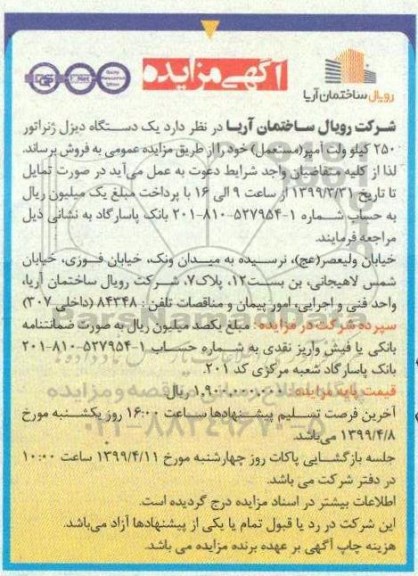 آگهی مزایده
رویال ساختمان آریا
شرکت رویال ساختمان آریا در نظر دارد یک دستگاه دیزل ژنراتور
۲۵۰ کیلو ولت آمپر(مستعمل) خود را از طریق مزایده عمومی به فروش برساند.
لذا از کلیه متقاضیان واجد شرایط دعوت به عمل می‌آید در صورت تمایل
تا تاریخ ۱۳۹۹/۳/۳۱ از ساعت ۹ الی ۱۶ با پرداخت مبلغ یک میلیون ریال
به حساب شماره ۱-۵۲۷۹۵۴-۸۱۰-۲۰۱ بانک پاسارگاد به نشانی ذیل
مراجعه فرمایند.
خیابان ولیعصر(عج)، نرسیده به میدان ونک، خیابان فوزی، خیابان
شمس لاهیجانی، بن بست۱۲، پلاک۷، شرکت رویال ساختمان آریا،
واحد فنی و اجرایی، امور پیمان و مناقصات تلفن: ۸۴۳۴۸ (داخلی ۳۰۷)
سپرده شرکت در مزایده: مبلغ یکصد میلیون ریال به صورت ضمانتنامه
بانکی یا فیش واریز نقدی به شماره حساب ۱-۵۲۷۹۵۴-۸۱۰-۲۰۱
بانک پاسارگاد شعبه مرکزی کد ۲۰۱.
قیمت پایه مزایده: ۱,۹۰۰,۰۰۰,۰۰۰ ریال
آخرین فرصت تسلیم پیشنهادها ساعت ۱۶:۰۰ روز یکشنبه مورخ
۱۳۹۹/۴/۸ می‌باشد.
جلسه بازگشایی پاکات روز چهارشنبه مورخ ۱۳۹۹/۴/۱۱ ساعت ۱۰:۰۰
در دفتر شرکت می باشد.
اطلاعات بیشتر در اسناد مزایده درج گردیده است.
این شرکت در رد یا قبول تمام یا یکی از پیشنهادها آزاد می‌باشد.
هزینه چاپ آگهی بر عهده برنده مزایده می باشد.
۰۲۱-۸۸۳۴۹۶۷۰-۵